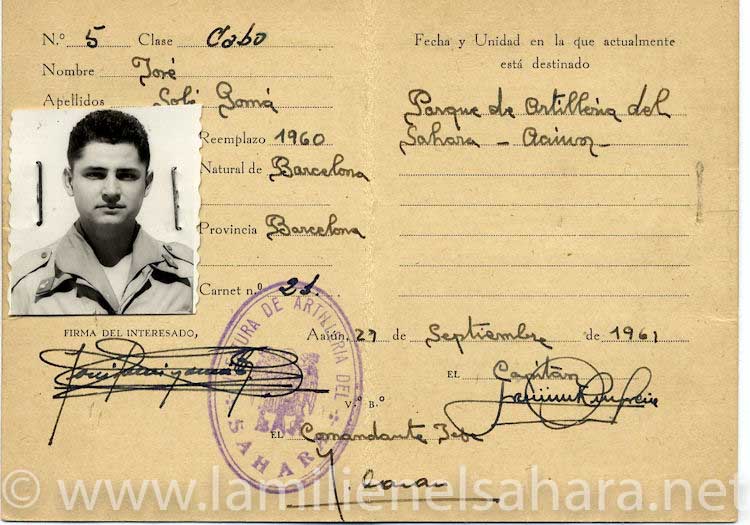 N.º 5 Clase Cabo
Nombre José
Apellidos Solé Gomá
Reemplazo 1960
Natural de Barcelona
Provincia Barcelona
Carnet n.º 21.
FIRMA DEL INTERESADO,
Fecha y Unidad en la que actualmente
está destinado
Parque de Artilleria del
Sahara - Aaiun -
Aaiun, 27 de Septiembre de 1961
EL Capitán
V.º B.º
EL Comandante Jefe
TURA DE ARTILLERIA DEL
SAHARA
© www.lamilienelsahara.net